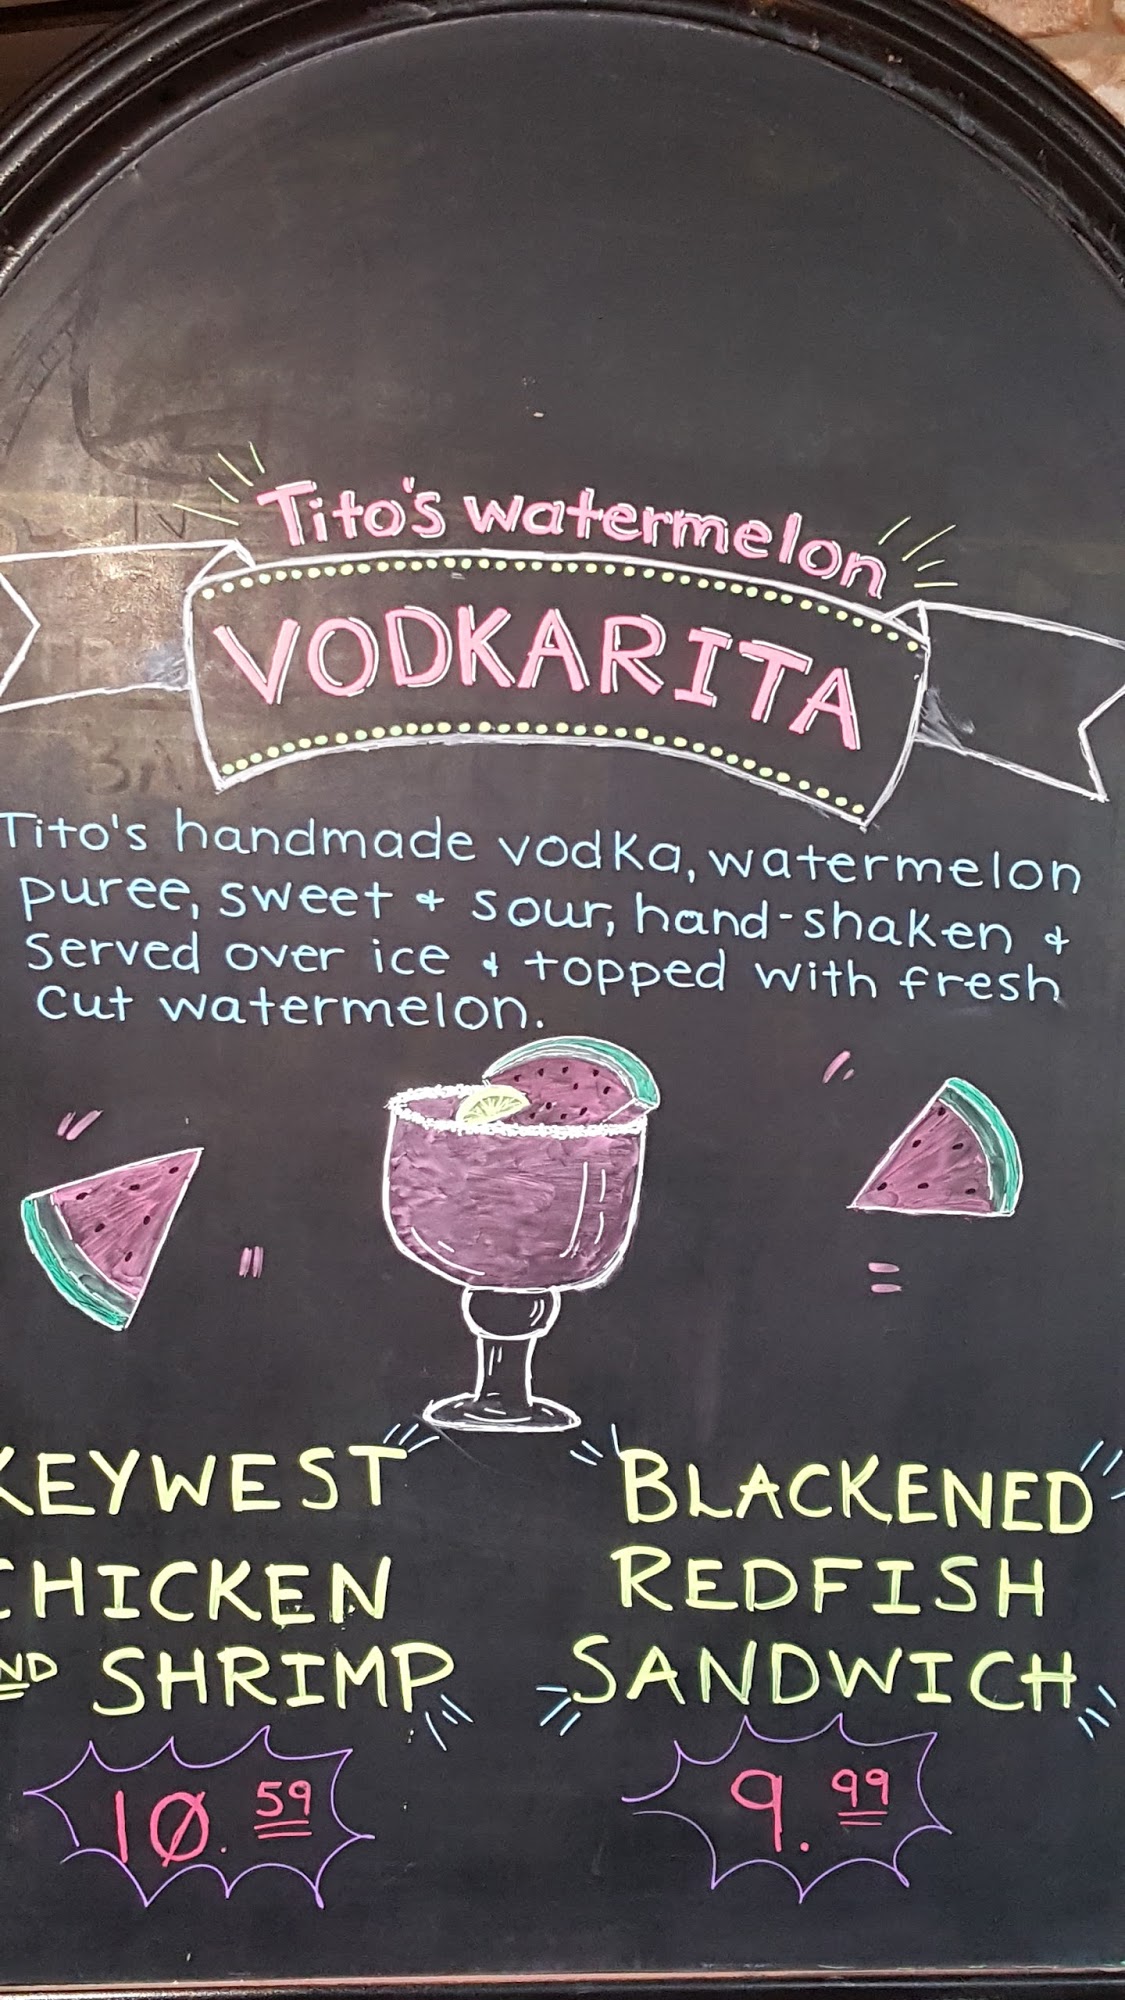 Tito's watermelon
VODKARITA
Tito's handmade vodka, watermelon
puree, sweet & sour, hand-shaken &
served over ice & topped with fresh
cut watermelon.
KEYWEST
CHICKEN
AND SHRIMP
10.59
BLACKENED
REDFISH
SANDWICH
9.99